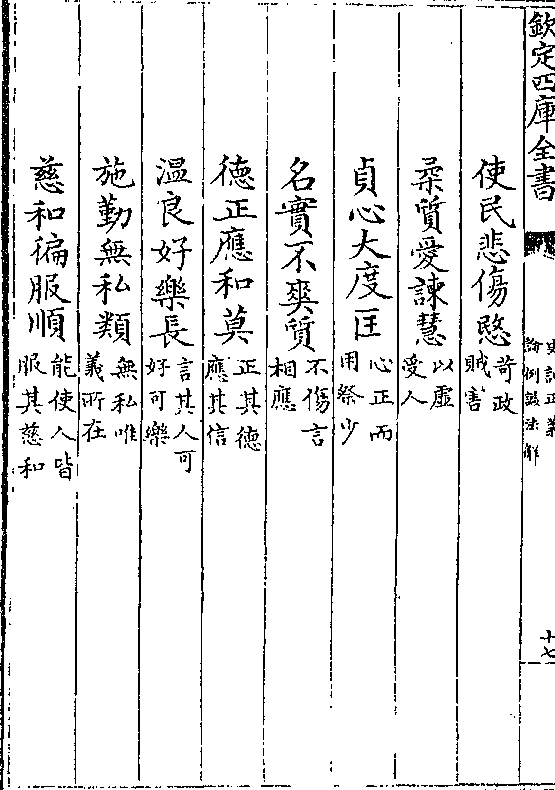 欽定四庫全書
史記正義
論例諡法解
十七
使民悲傷愍苛政賊害
柔質愛諫慧以虛受人
貞心大度匡心正而用察少
名實不爽質不傷言相應
德正應和莫正其德應其信
溫良好樂長言其人可好可樂
施勤無私類無私唯義所在
慈和徧服順能使人皆服其慈和